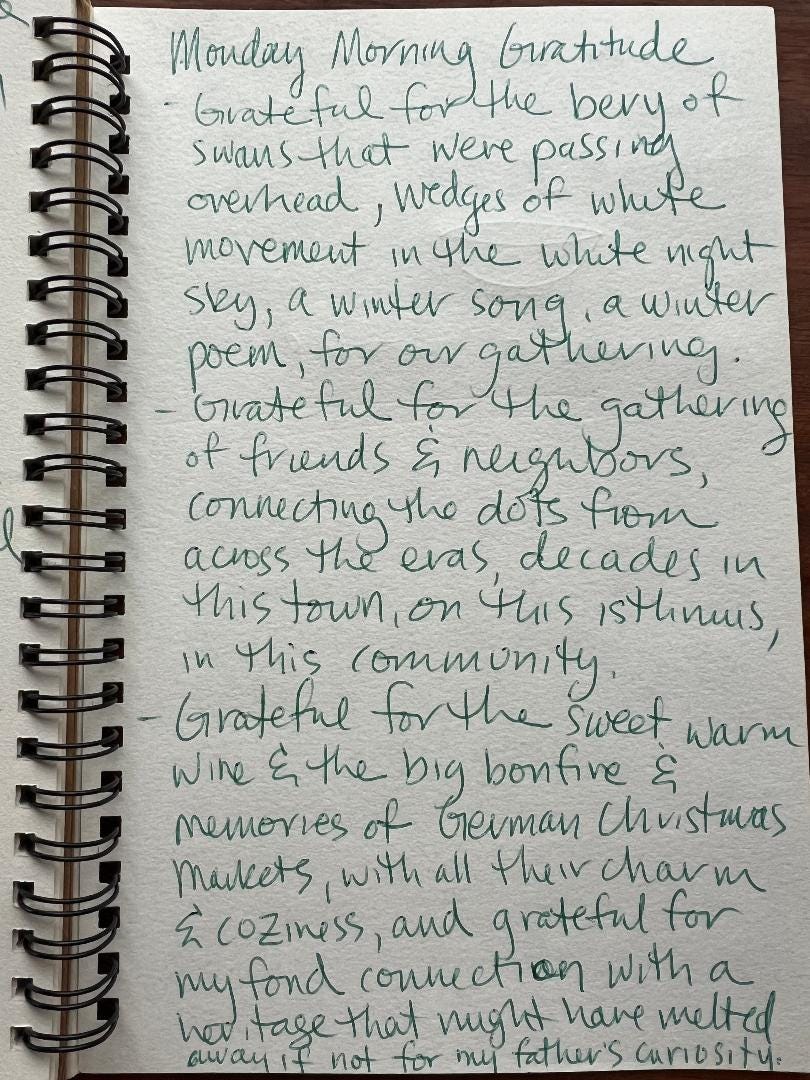 Monday Morning Gratitude
- Grateful for the bevy of
swans that were passing
overhead, wedges of white
movement in the white night
sky, a winter song, a winter
poem, for our gathering.
- Grateful for the gathering
of friends & neighbors,
connecting the dots from
across the eras, decades in
this town, on this isthmus,
in this community.
- Grateful for the sweet warm
wine & the big bonfire &
memories of German Christmas
Markets, with all their charm
& coziness, and grateful for
my fond connection with a
heritage that might have melted
away if not for my father's curiosity.